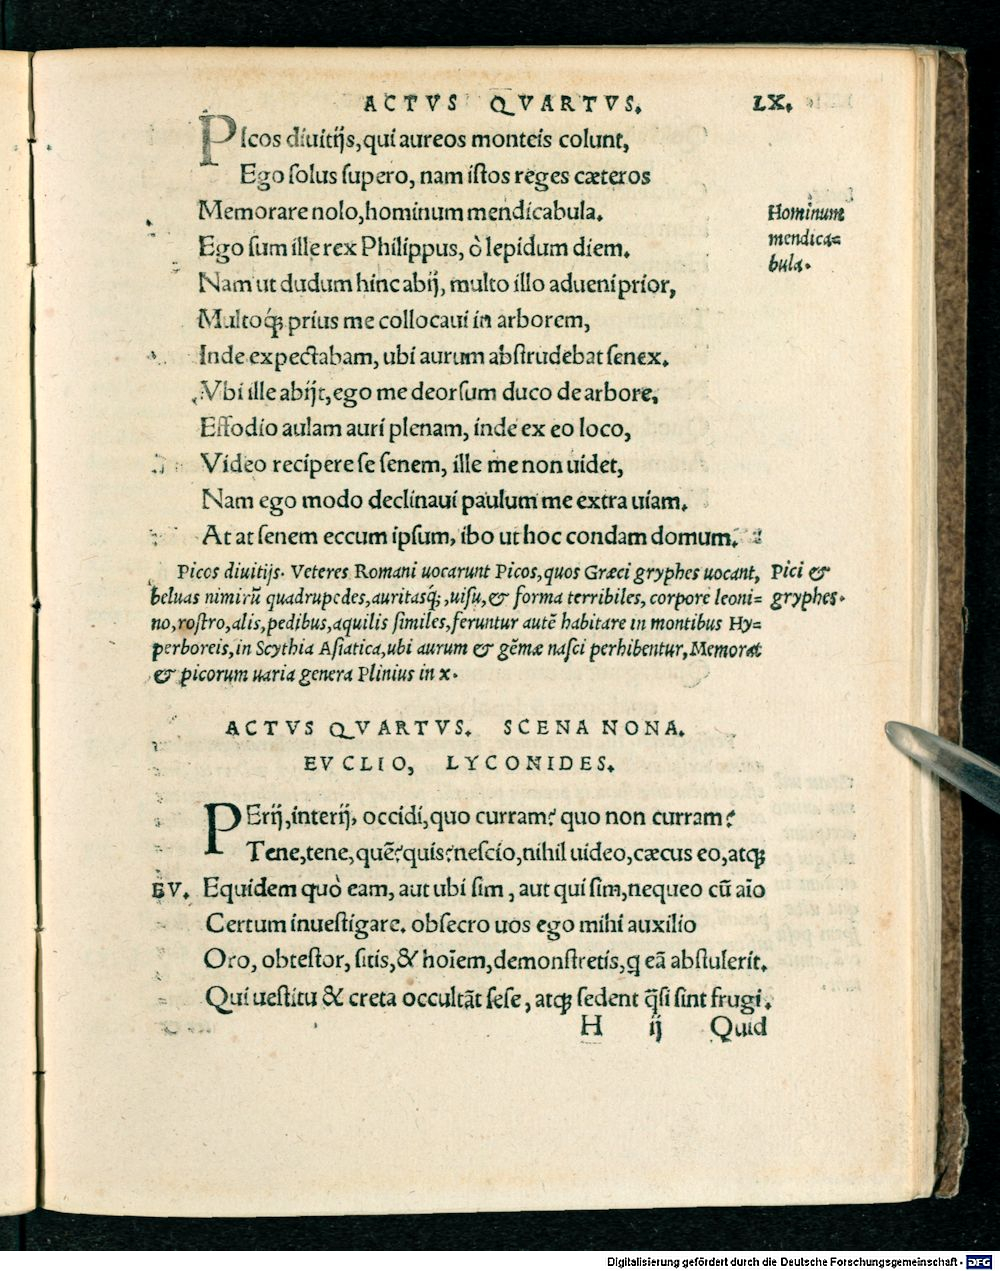 ACTVS QVARTVS. LX.
PIcos diuitijs, qui aureos monteis colunt,
Ego ſolus ſupero, nam iſtos reges cæteros
Memorare nolo, hominum mendicabula.
Hominum
mendica=
bula.
Ego ſum ille rex Philippus, ò lepidum diem.
Nam ut dudum hinc abij, multo illo adueni prior,
Multoq́; prius me collocaui in arborem,
Inde expectabam, ubi aurum abſtrudebat ſenex.
Vbi ille abijt, ego me deorſum duco de arbore,
Effodio aulam auri plenam, inde ex eo loco,
Video recipere ſe ſenem, ille me non uidet,
Nam ego modo declinaui paulum me extra uiam.
At at ſenem eccum ipſum, ibo ut hoc condam domum.
Picos diuitijs. Veteres Romani uocarunt Picos, quos Græci gryphes uocant,
beluas nimirũ quadrupedes, auritasq́;, uiſu, & forma terribiles, corpore leoni=
no, roſtro, alis, pedibus, aquilis ſimiles, feruntur autẽ habitare in montibus Hy=
perboreis, in Scythia Aſiatica, ubi aurum & gẽmæ naſci perhibentur, Memorat
& picorum uaria genera Plinius in x.
Pici &
gryphes.
ACTVS QVARTVS. SCENA NONA.
EVCLIO, LYCONIDES.
PErij, interij, occidi, quo curram? quo non curram?
Tene, tene, quẽ? quis? neſcio, nihil uideo, cæcus eo, atq;
EV. Equidem quò eam, aut ubi ſim, aut qui ſim, nequeo cũ aĩo
Certum inueſtigare. obſecro uos ego mihi auxilio
Oro, obteſtor, ſitis, & hoĩem, demonſtretis, q eã abſtulerit.
Qui ueſtitu & creta occultãt ſeſe, atq; ſedent q̃ſi ſint frugi.
H ij Quid
Digitalisierung gefördert durch die Deutsche Forschungsgemeinschaft - DFG